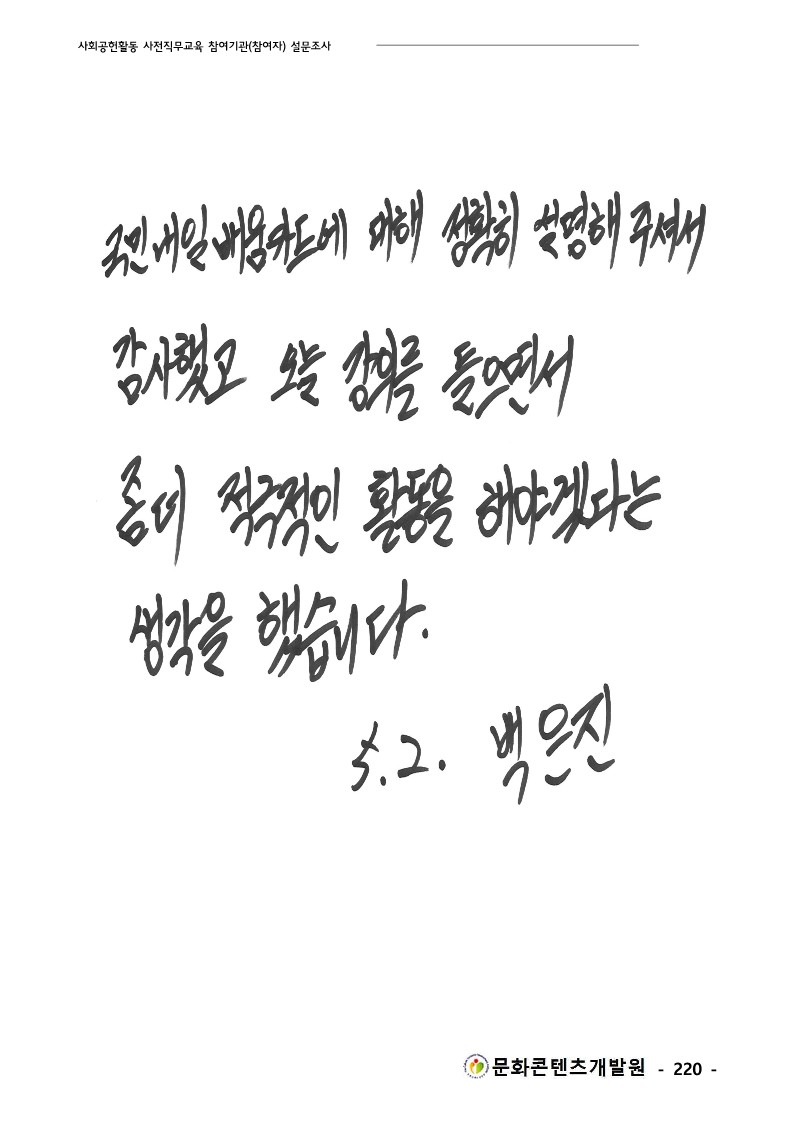 사회공헌활동 사전직무교육 참여기관(참여자) 설문조사
국민내일배움카드에 대해 정확히 설명해 주셔서
감사했고 오늘 강의를 들으면서
좀더 적극적인 활동을 해야겠다는
생각을 했습니다.
5.2. 백은진
문화콘텐츠개발원 - 220 -